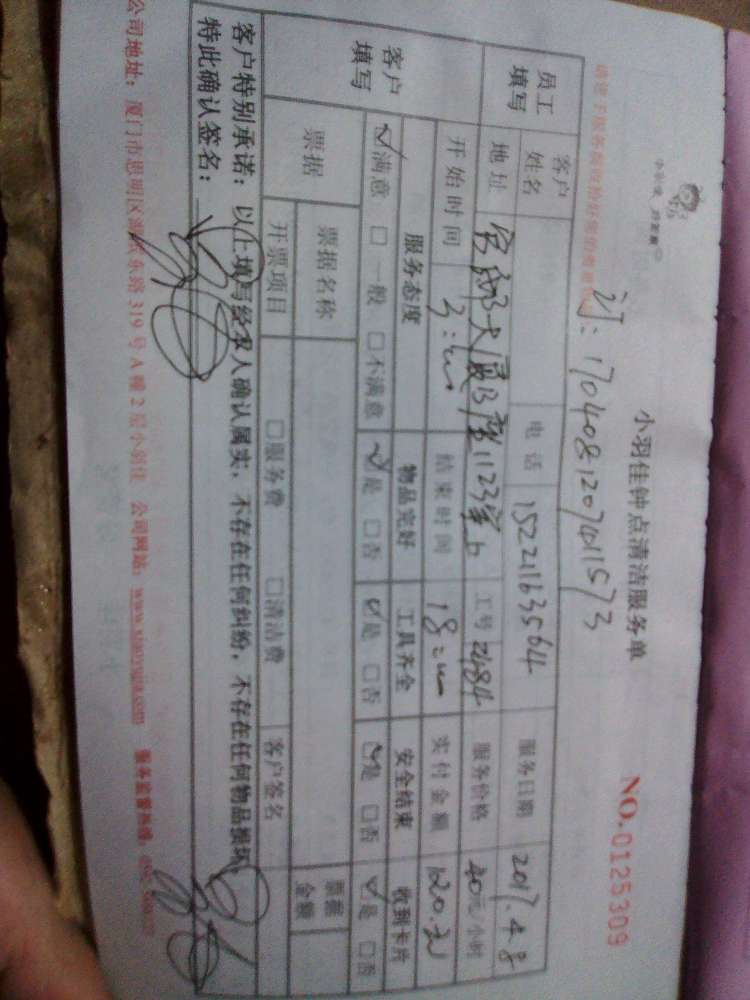 小羽佳钟点清洁服务单
NO.0125309
订:17040812074011573
员工填写
客户姓名
电话 15221163564
服务日期 2017.4.8
地址
大厦B座1123室b
工号 2484
服务价格 40元/小时
开始时间
结束时间
实付金额 120.元
客户填写
服务态度 物品完好 工具齐全 安全结束 收到卡片
☑满意 □一般 □不满意 ☑是 □否 ☑是 □否 ☑是 □否 ☑是 □否
票据
票据名称
票据金额
开票项目 □服务费 □清洁费 客户签名
客户特别承诺:以上填写经本人确认属实,不存在任何纠纷,不存在任何物品损坏,
特此确认签名:
公司地址:厦门市思明区 东路319号A幢2层小羽佳 公司网站:www.xiaoyujia.com 服务监督热线: